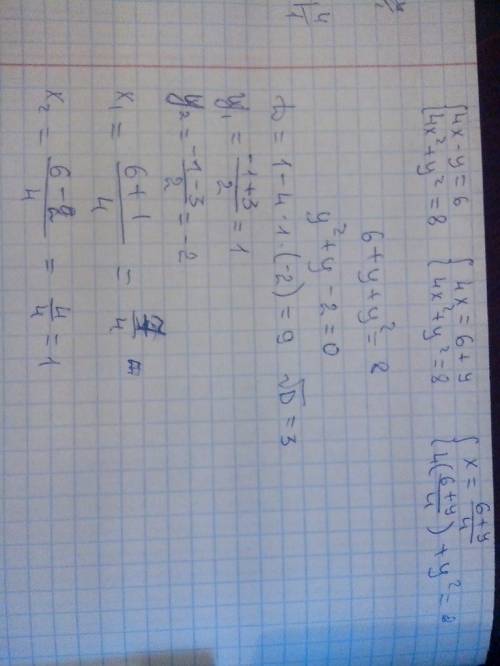 {4x-y=6 {4x=6+y {x=6+y/4
{4x²+y²=8 {4x²+y²=8 {4(6+y/4)+y²=8
6+y+y²=8
y²+y-2=0
D=1-4·1·(-2)=9 √D=3
y₁=-1+3/2=1
y₂=-1-3/2=-2
x₁=6+1/4=7/4=
x₂=6-2/4=4/4=1